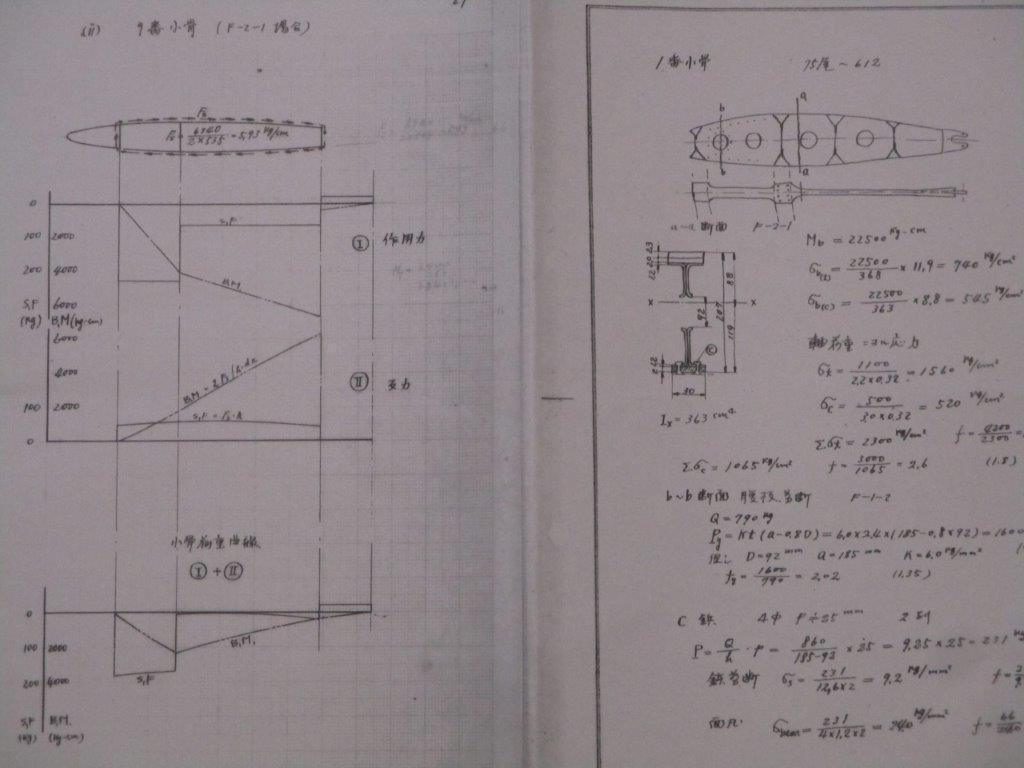 (ii) 9番小骨 (F-2-1場合)
f₃
f₃ = 6340/(2×535) = 5.93 kg/cm
0
100 2000
200 4000
S,F 6000
(kg) B,M(kg-cm)
S,F
B,M
Ⅰ 作用力
6000
4000
100 2000
0
S,F = f₃·h
Ⅱ 支力
小骨荷重曲線
Ⅰ + Ⅱ
0
100 2000
200 4000
S,F B,M.
(kg) (kg-cm)
S,F
B,M,
1番小骨 75尾~612
b a
b a
a~a 断面 F-2-1
23
20
12
88
207
119
92
x x
c
30
Ix = 363 cm⁴
Mb = 22500 kg-cm
σb(t) = 22500/368 × 11,9 = 740 kg/cm²
σb(c) = 22500/363 × 8,8 = 545 kg/cm²
軸荷重ニヨル応力
σt = 1100/(2,2×0,32) = 1560 kg/cm²
σc = 500/(30×0,32) = 520 kg/cm²
Σσt = 2300 kg/cm² f = 4200/2300 =
Σσc = 1065 kg/cm² f = 3000/1065 = 2.6 (1.8)
b~b 断面 腹板剪断 F-1-2
Q = 790 kg
Pg = Kt(a-0,8D) = 6,0×2,4×(185-0,8×92) = 1600
但し D=92 mm a=185 mm K=6,0 kg/mm²
fg = 1600/790 = 2,02 (1.35)
C 鋲 4φ P≑25 mm 2列
P = Q/h · p = 860/(185-92) × 25 = 9,25×25 = 231 kg
鋲剪断 σs = 231/(12,6×2) = 9,2 kg/mm² f =
面圧 σbear = 231/(4×1,2×2) = 240 kg/mm² f =